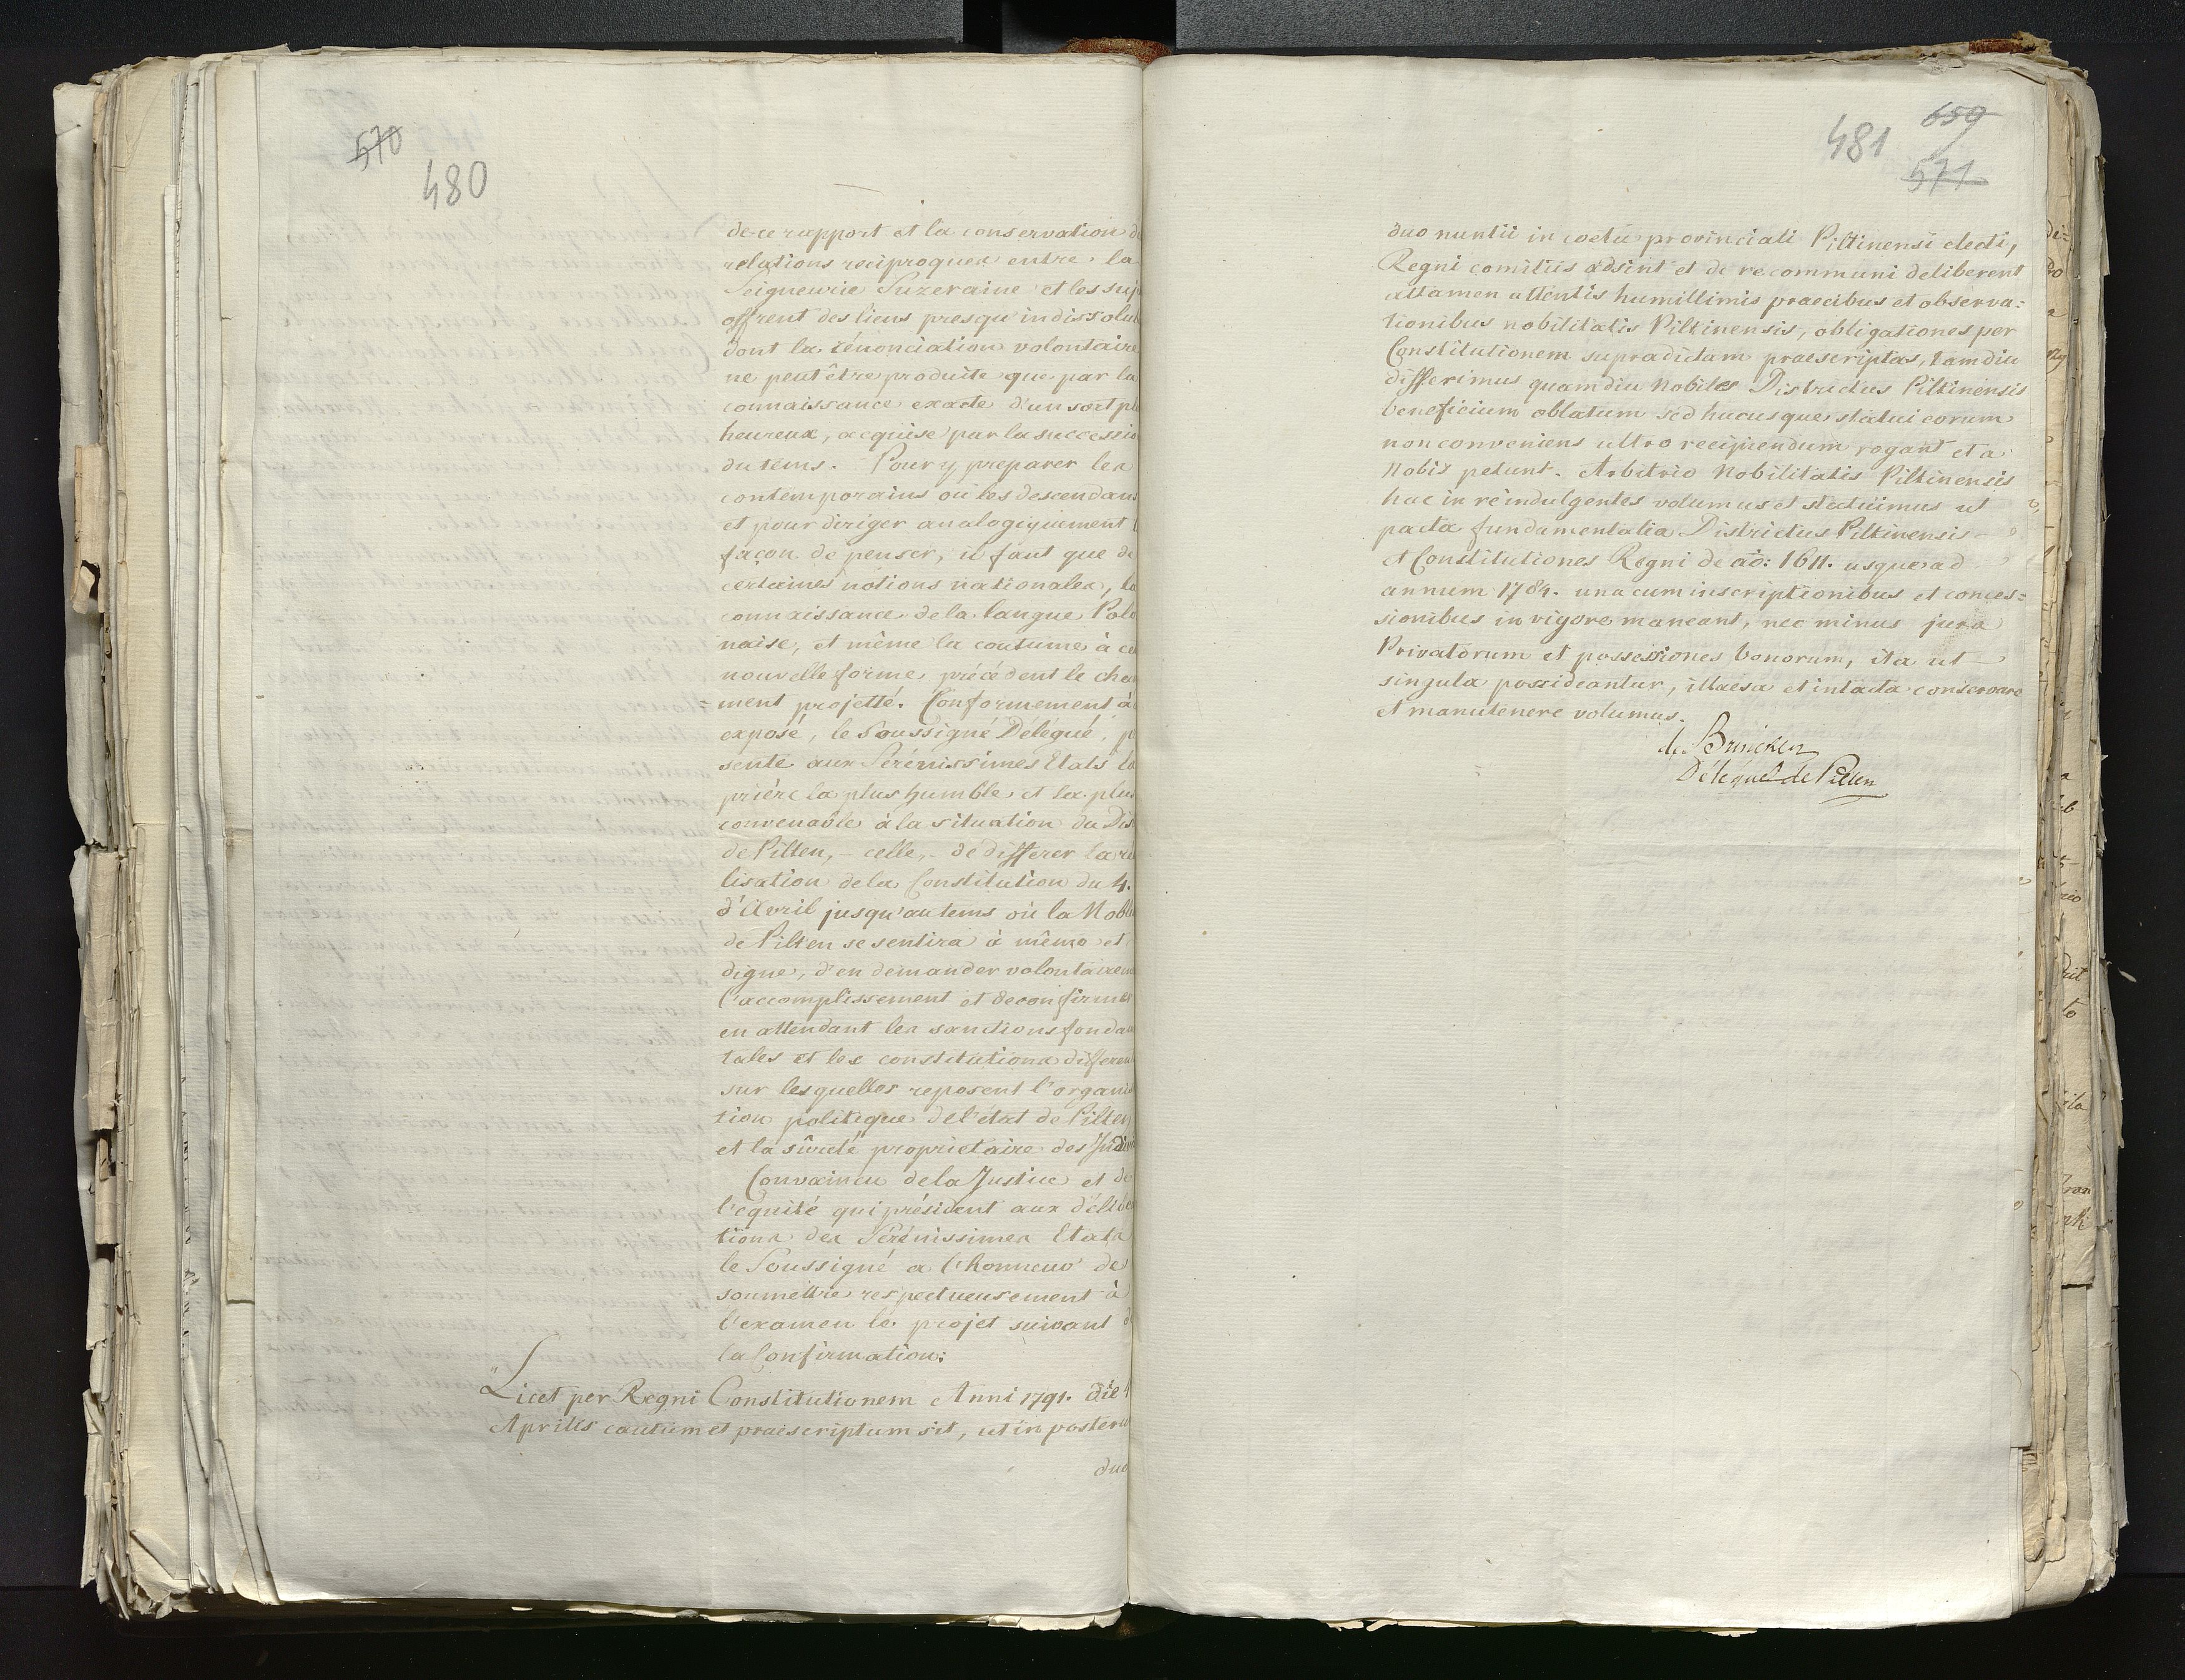 570
480
de ce rapport et la conservation d
relations reciproques entre la
Seigneurie Suzeraine et les suj
offrent des liens presqu'indissolub
dont la rénonciation volontaire
ne peut être produite que par la
connaissance exacte d'un sort pl
heureux, acquise par la successio
du tems. Pour y preparer les
contemporains où les descendans
et pour diriger analogiquement l
façon de penser, il faut que de
certaines notions nationales, la
connaissance de la langue Polo
naise, et même la coutume à ce
nouvelle forme précédent le chan
=ment projetté. Conformement à
exposé, le Soussigné Délégué, p
sente aux Sérénissimes Etats la
prière la plus humble et lex plus
convenable à la situation du Dis
de Pilten, - celle, - de differer la re
lisation de la Constitution du 4.
d'Avril jusqu'au tems où la Nobl
de Pilten se sentira à même et
digne, d'en demander volontairem
l'accomplissement et de confirmer
en attendant les sanctions fondam
tales et les constitutions differen
sur lesquelles reposent l'organis
tion politique de l'état de Pilten
et la sûreté proprietaire des Indiv
Convaincu de la Justice et de
l'equité qui président aux déliber
tions des Sérénissimes Etats
le Soussigné a l'honneur de
soumettre respectueusement à
l'examen le projet suivant d
la Confirmation:
"Licet per Regni Constitutionem Anni 1791. die 4
Aprilis cautum et praescriptum sit, ut in posteru
duo
481 659
571
duo nuntii in coetu provinciali Piltinensi electi,
Regni comitiis adsint et de re communi deliberent
attamen attentis humillimis praecibus et observa=
tionibus nobilitatis Piltinensis, obligationes per
Constitutionem supradictam praescriptas, tamdiu
differimus quamdiu Nobiles Districtus Piltinensis
beneficium oblatum sed hucusque statui eorum
non conveniens ultro recipiendum rogant et a
Nobis petunt. Arbitrio Nobilitatis Piltinensis
hac in re indulgentes volumus et statuimus ut
pacta fundamentalia Districtus Piltinensis
et Constitutiones Regni de ao: 1611. usque ad
annum 1784. una cum inscriptionibus et conces=
sionibus in vigore maneant, nec minus jura
Privatorum et possessiones bonorum, ita ut
singula possideantur, illaesa et intacta conservare
et manutenere volumus.
de Brincken
Délégué de Pilten